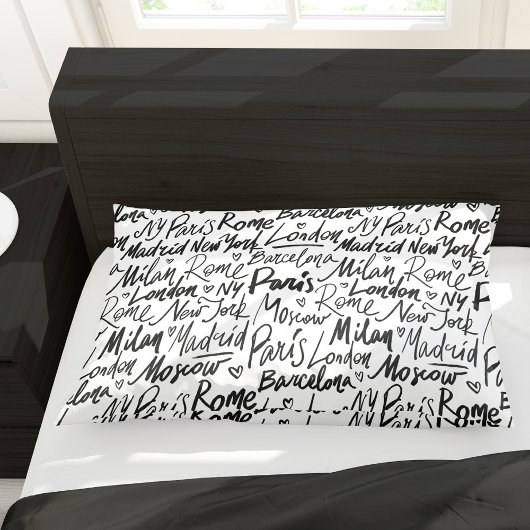 Barcelona Moscow
NY Paris Rome Barcelona NY Paris Rome
Madrid New York London Madrid New York
Milan Rome Barcelona Milan Rome
London NY Paris London NY
Rome New York Moscow Rome New York
Milan Madrid Paris Milan Madrid
London Moscow London Moscow
Barcelona Barcelona
NY Paris Rome NY Paris Rome